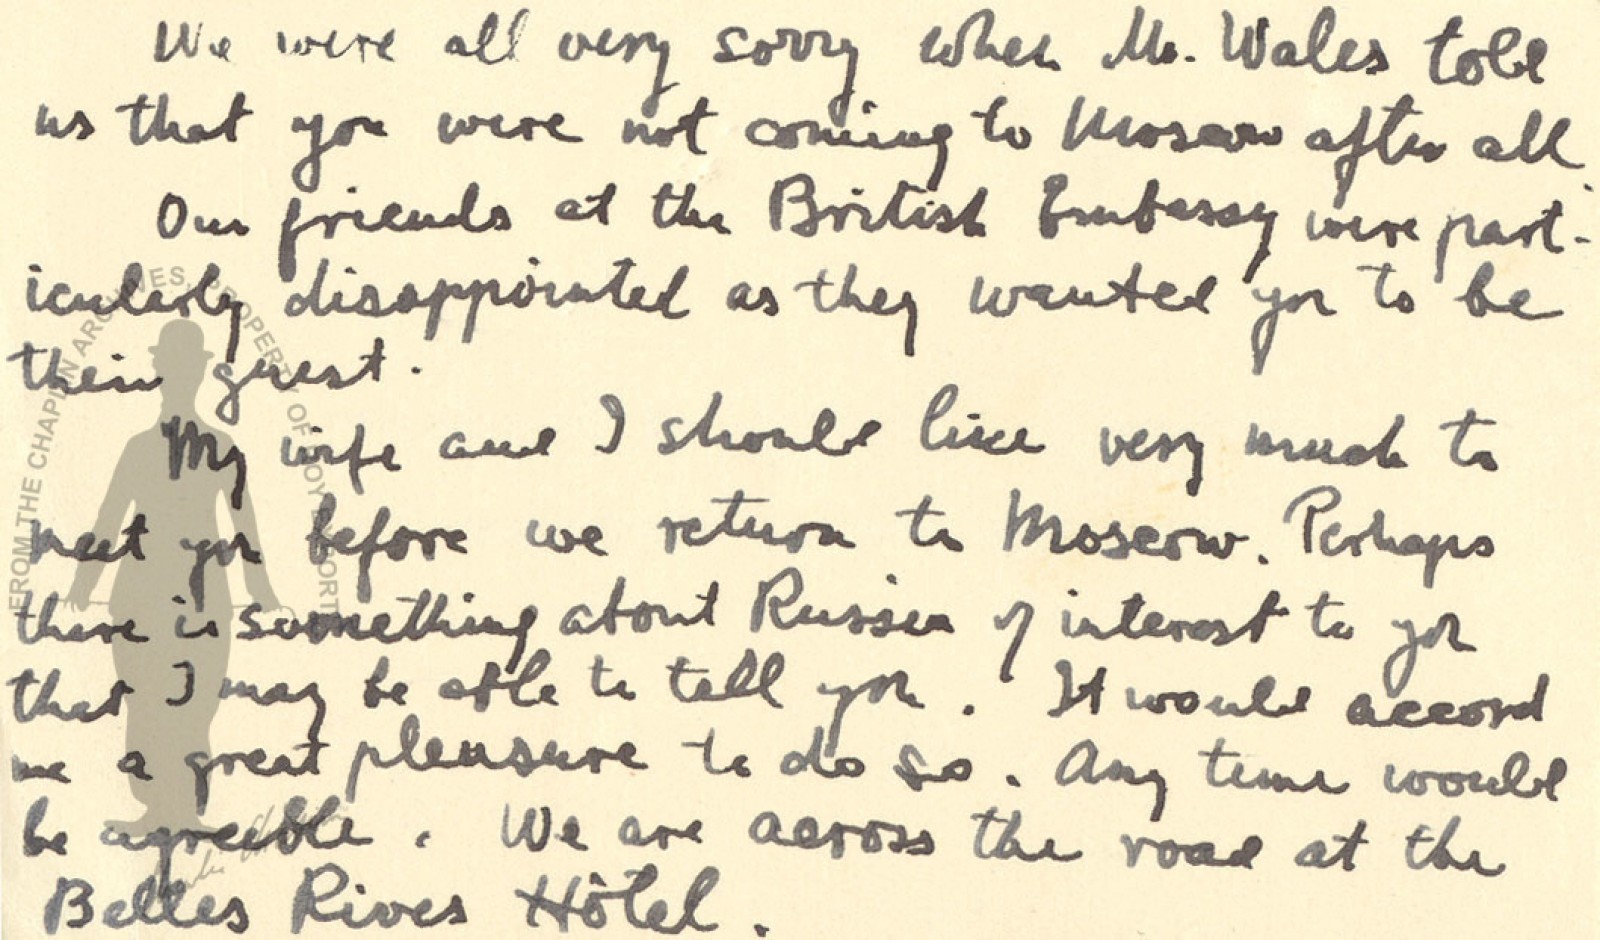 We were all very sorry when Mr. Wales told
us that you were not coming to Moscow after all.
Our friends at the British Embassy were part-
icularly disappointed as they wanted you to be
their guest.
My wife and I should like very much to
meet you before we return to Moscow. Perhaps
there is something about Russia of interest to you
that I may be able to tell you. It would accord
me a great pleasure to do so. Any time would
be agreeable. We are across the road at the
Belles Rives Hôtel.
FROM THE CHAPLIN ARCHIVES, PROPERTY OF ROY EXPORT